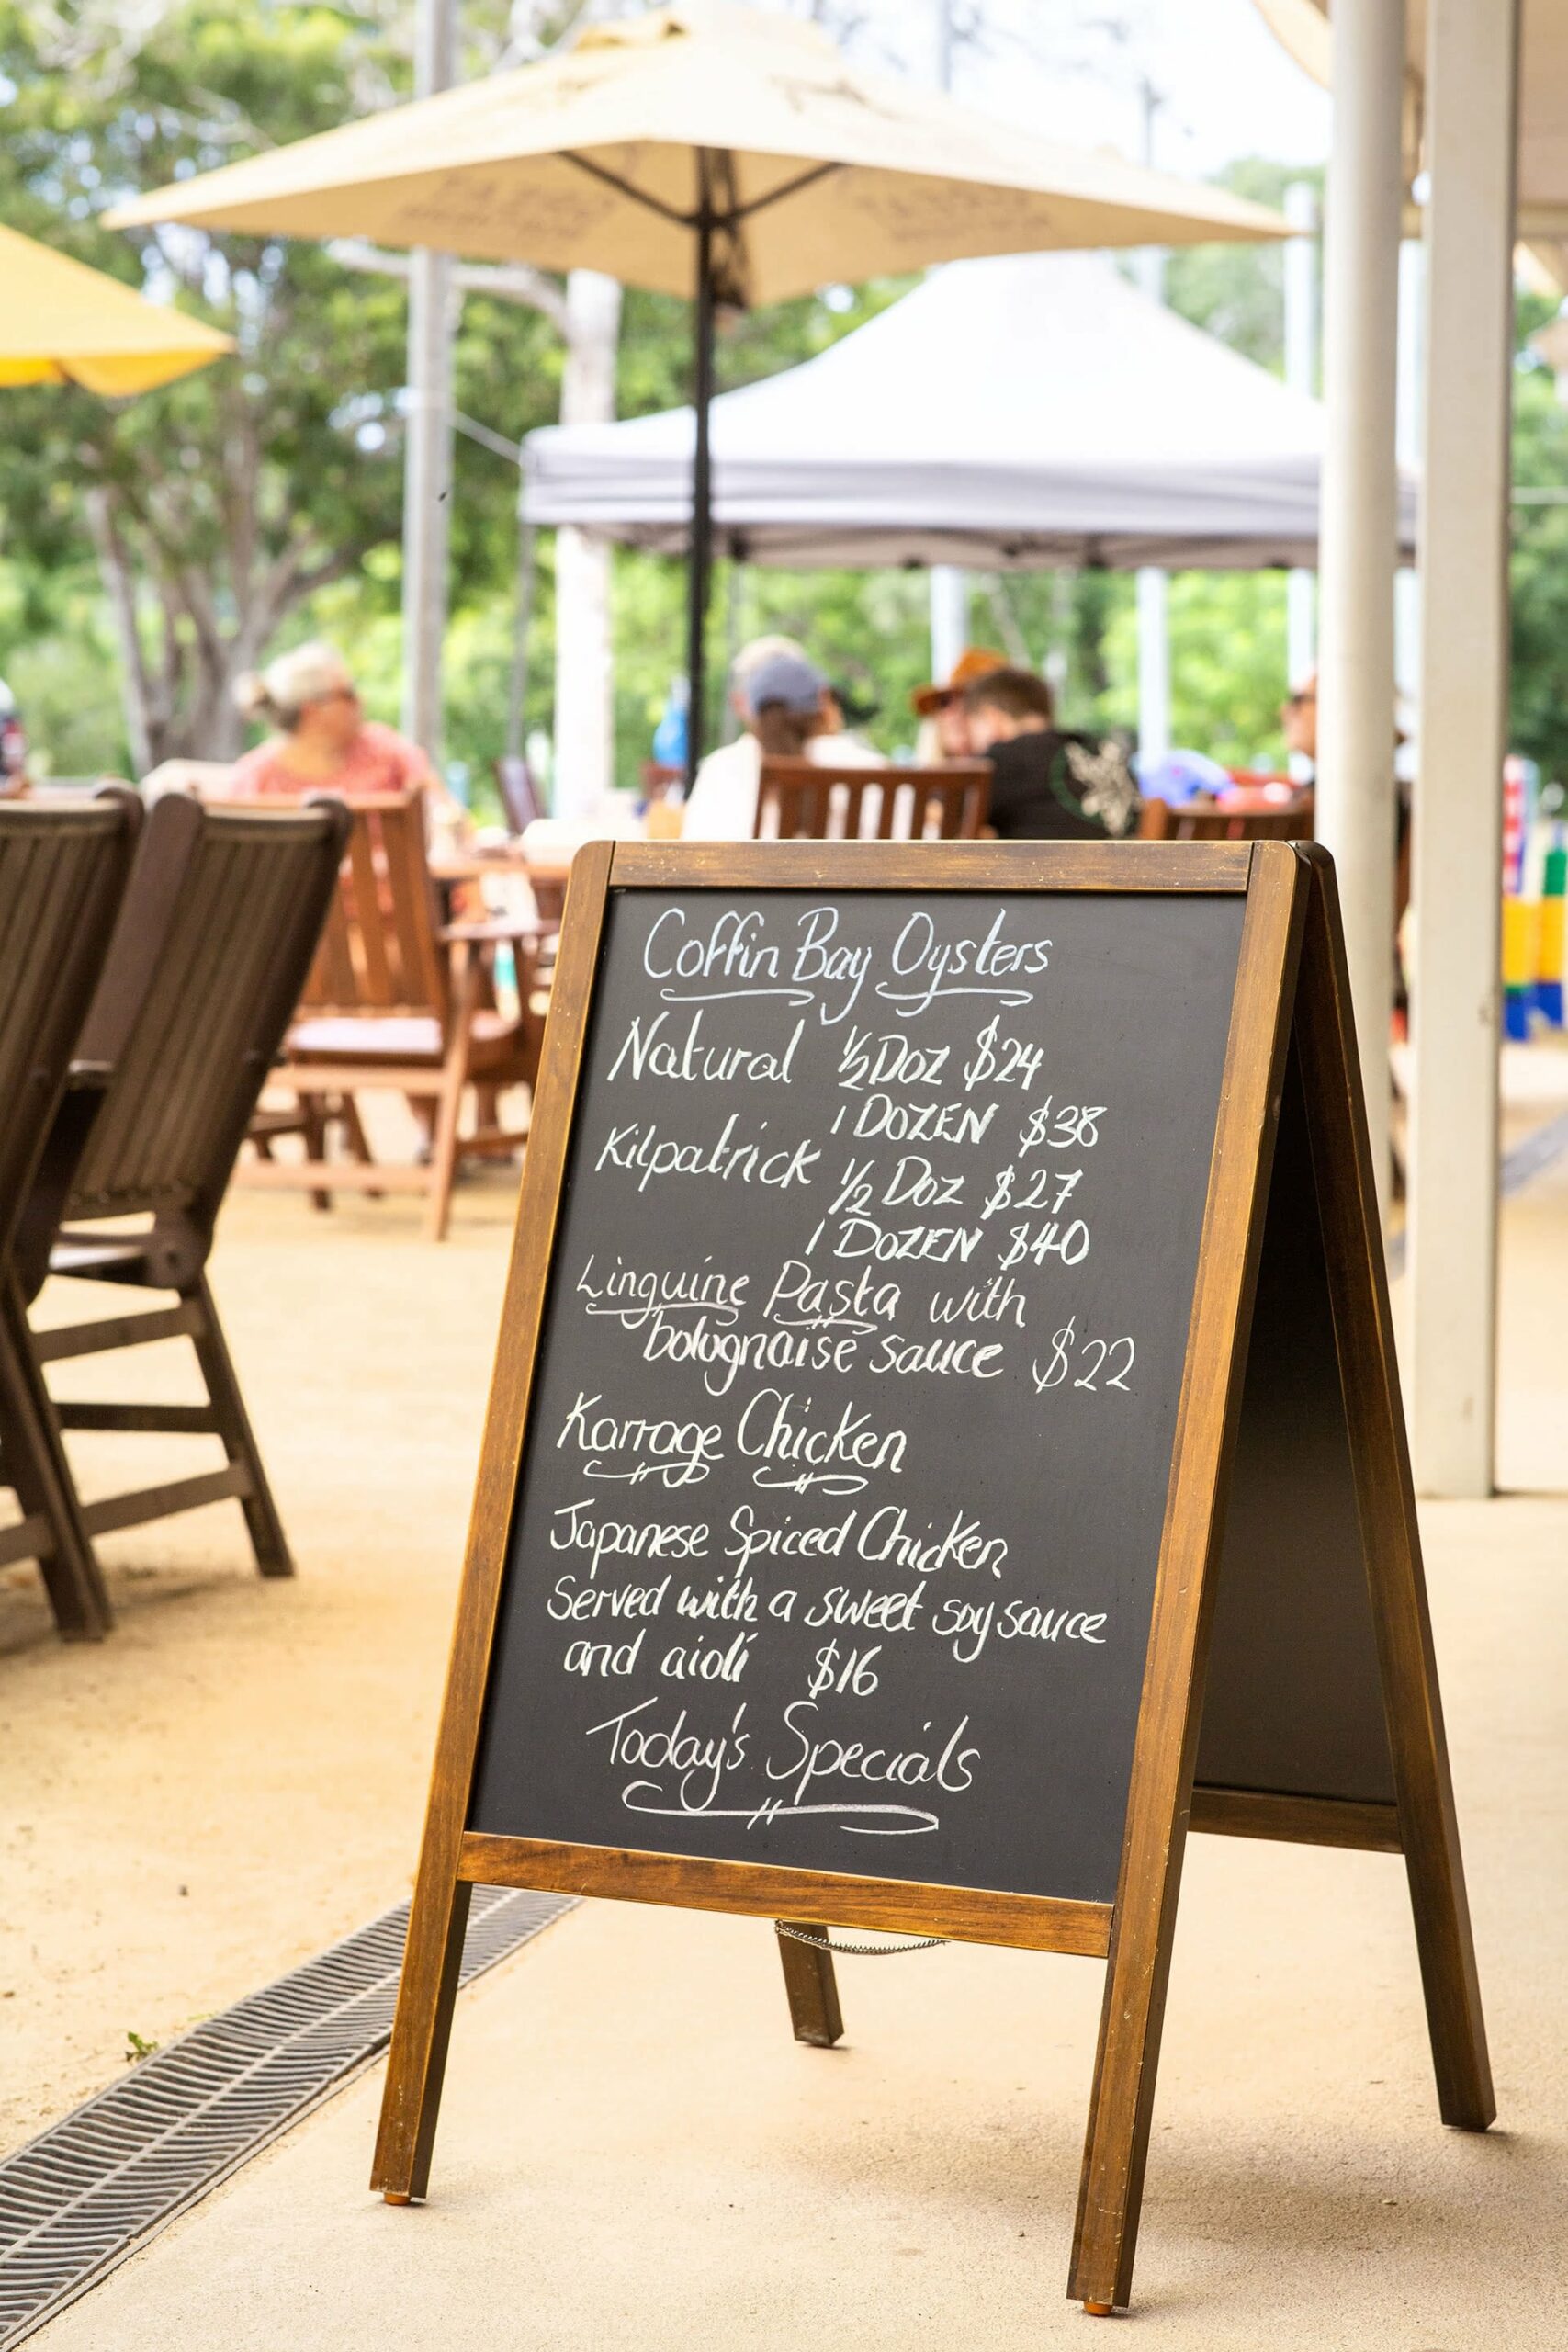 Coffin Bay Oysters
Natural ½ Doz $24
1 DOZEN $38
Kilpatrick ½ Doz $27
1 DOZEN $40
Linguine Pasta with
bolognaise sauce $22
Karrage Chicken
Japanese Spiced Chicken
Served with a sweet soy sauce
and aioli $16
Today's Specials